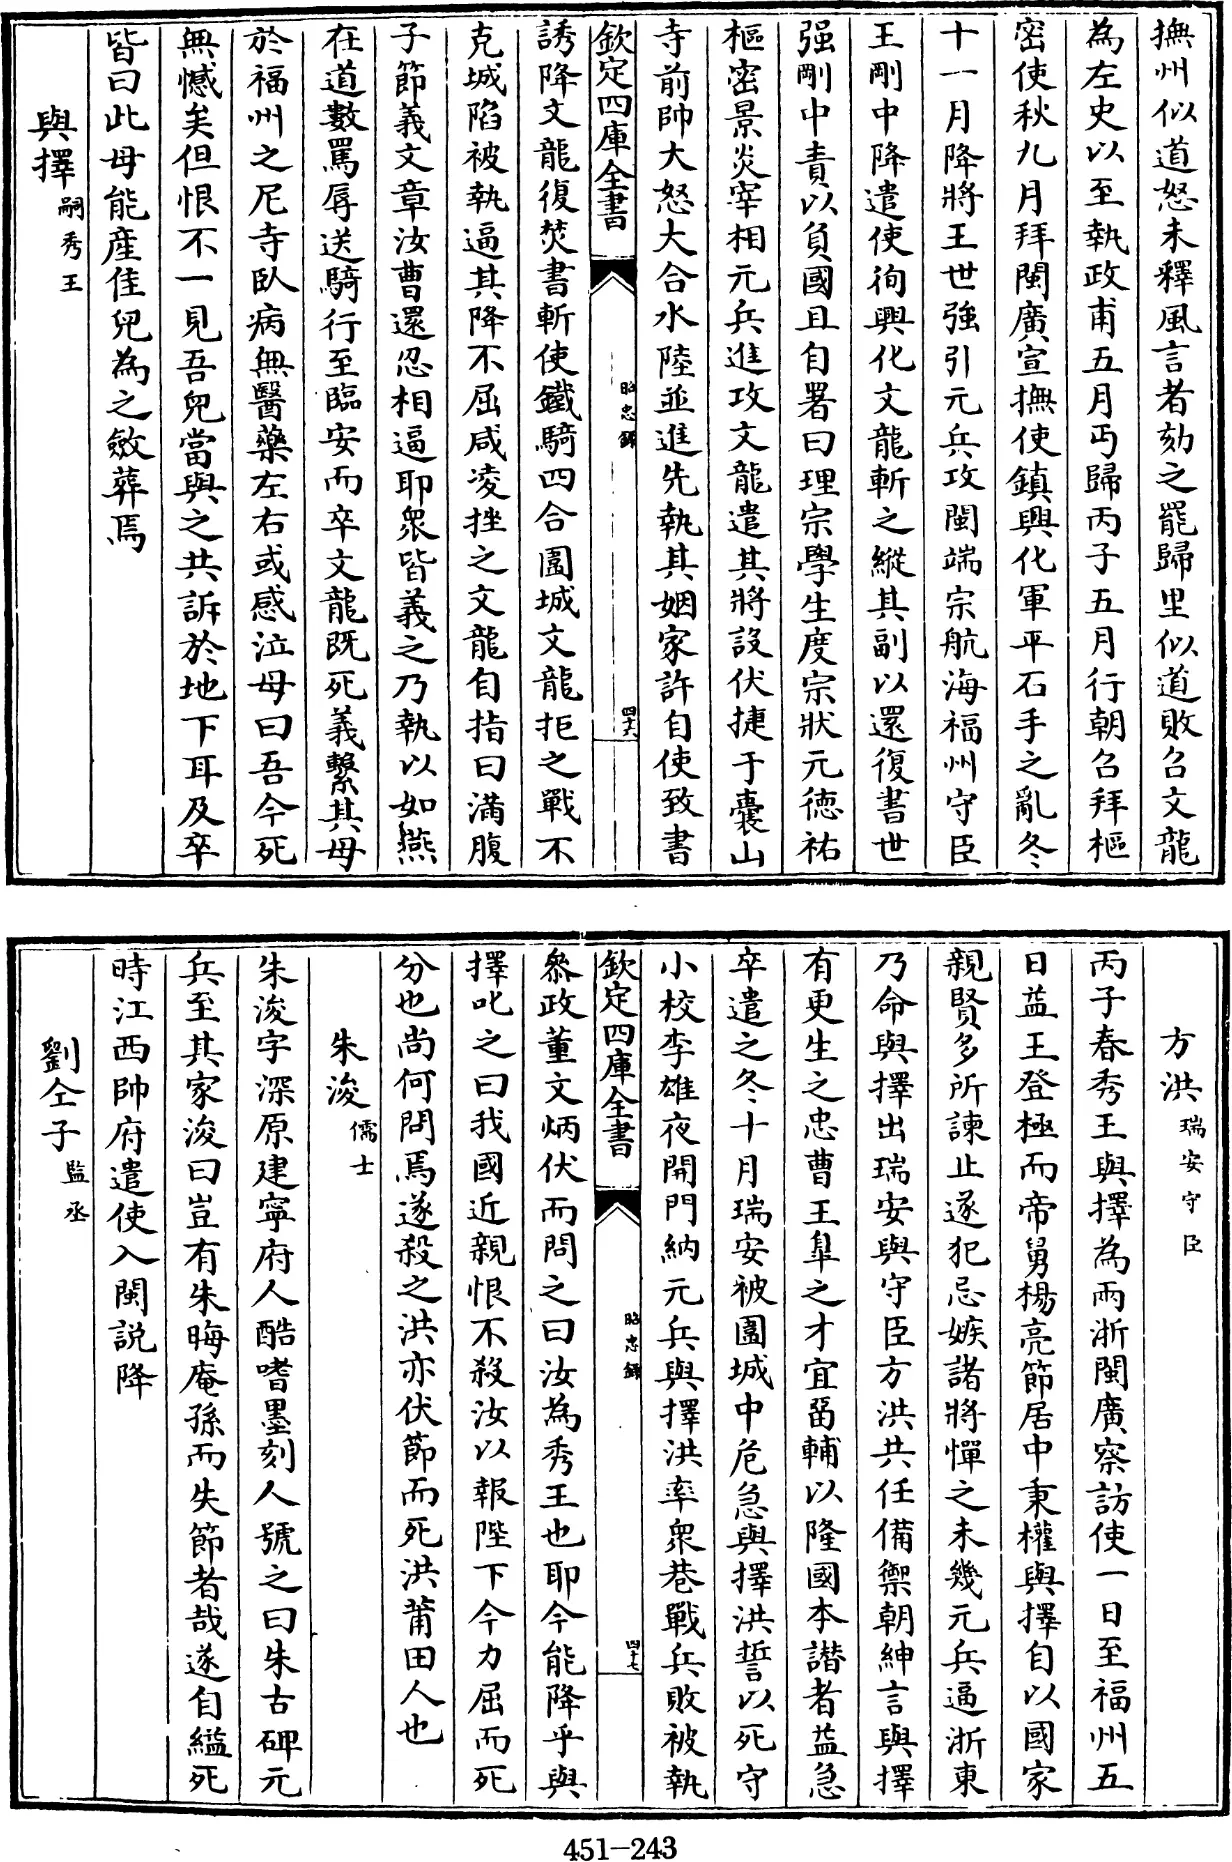 撫州似道怒未釋風言者劾之罷歸里似道敗召文龍
為左史以至執政甫五月丐歸丙子五月行朝召拜樞
密使秋九月拜閩廣宣撫使鎮興化軍平石手之亂冬
十一月降將王世強引元兵攻閩端宗航海福州守臣
王剛中降遣使徇興化文龍斬之縱其副以還復書世
强剛中責以負國且自署曰理宗學生度宗狀元徳祐
樞密景炎宰相元兵進攻文龍遣其將設伏捷于囊山
寺前帥大怒大合水陸並進先執其姻家許自使致書
欽定四庫全書
昭忠錄
四十六
誘降文龍復焚書斬使鐵騎四合圍城文龍拒之戰不
克城陷被執逼其降不屈咸凌挫之文龍自指曰滿腹
子節義文章汝曹還忍相逼耶衆皆義之乃執以如燕
在道數罵辱送騎行至臨安而卒文龍既死義繫其母
於福州之尼寺臥病無醫藥左右或感泣母曰吾今死
無憾矣但恨不一見吾兒當與之共訴於地下耳及卒
皆曰此母能産佳兒為之斂葬焉
與擇 嗣秀王
方洪 瑞安守臣
丙子春秀王與擇為兩浙閩廣察訪使一日至福州五
日益王登極而帝舅楊亮節居中秉權與擇自以國家
親賢多所諫止遂犯忌嫉諸將憚之未幾元兵逼浙東
乃命與擇出瑞安與守臣方洪共任備禦朝紳言與擇
有更生之忠曹王臯之才宜留輔以隆國本譖者益急
卒遣之冬十月瑞安被圍城中危急與擇洪誓以死守
小校李雄夜開門納元兵與擇洪率衆巷戰兵敗被執
欽定四庫全書
昭忠錄
四十七
叅政董文炳伏而問之曰汝為秀王也耶今能降乎與
擇叱之曰我國近親恨不殺汝以報陛下今力屈而死
分也尚何問焉遂殺之洪亦伏節而死洪莆田人也
朱浚 儒士
朱浚字深原建寧府人酷嗜墨刻人號之曰朱古碑元
兵至其家浚曰豈有朱晦庵孫而失節者哉遂自縊死
時江西帥府遣使入閩説降
劉仝子 監丞
451-243